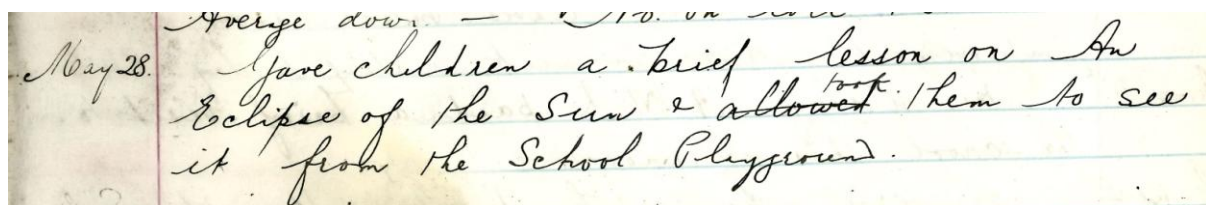 Average down — No. on roll
May 28. Gave children a brief lesson on An
Eclipse of the Sun & allowed took them to see
it from the School Playground.